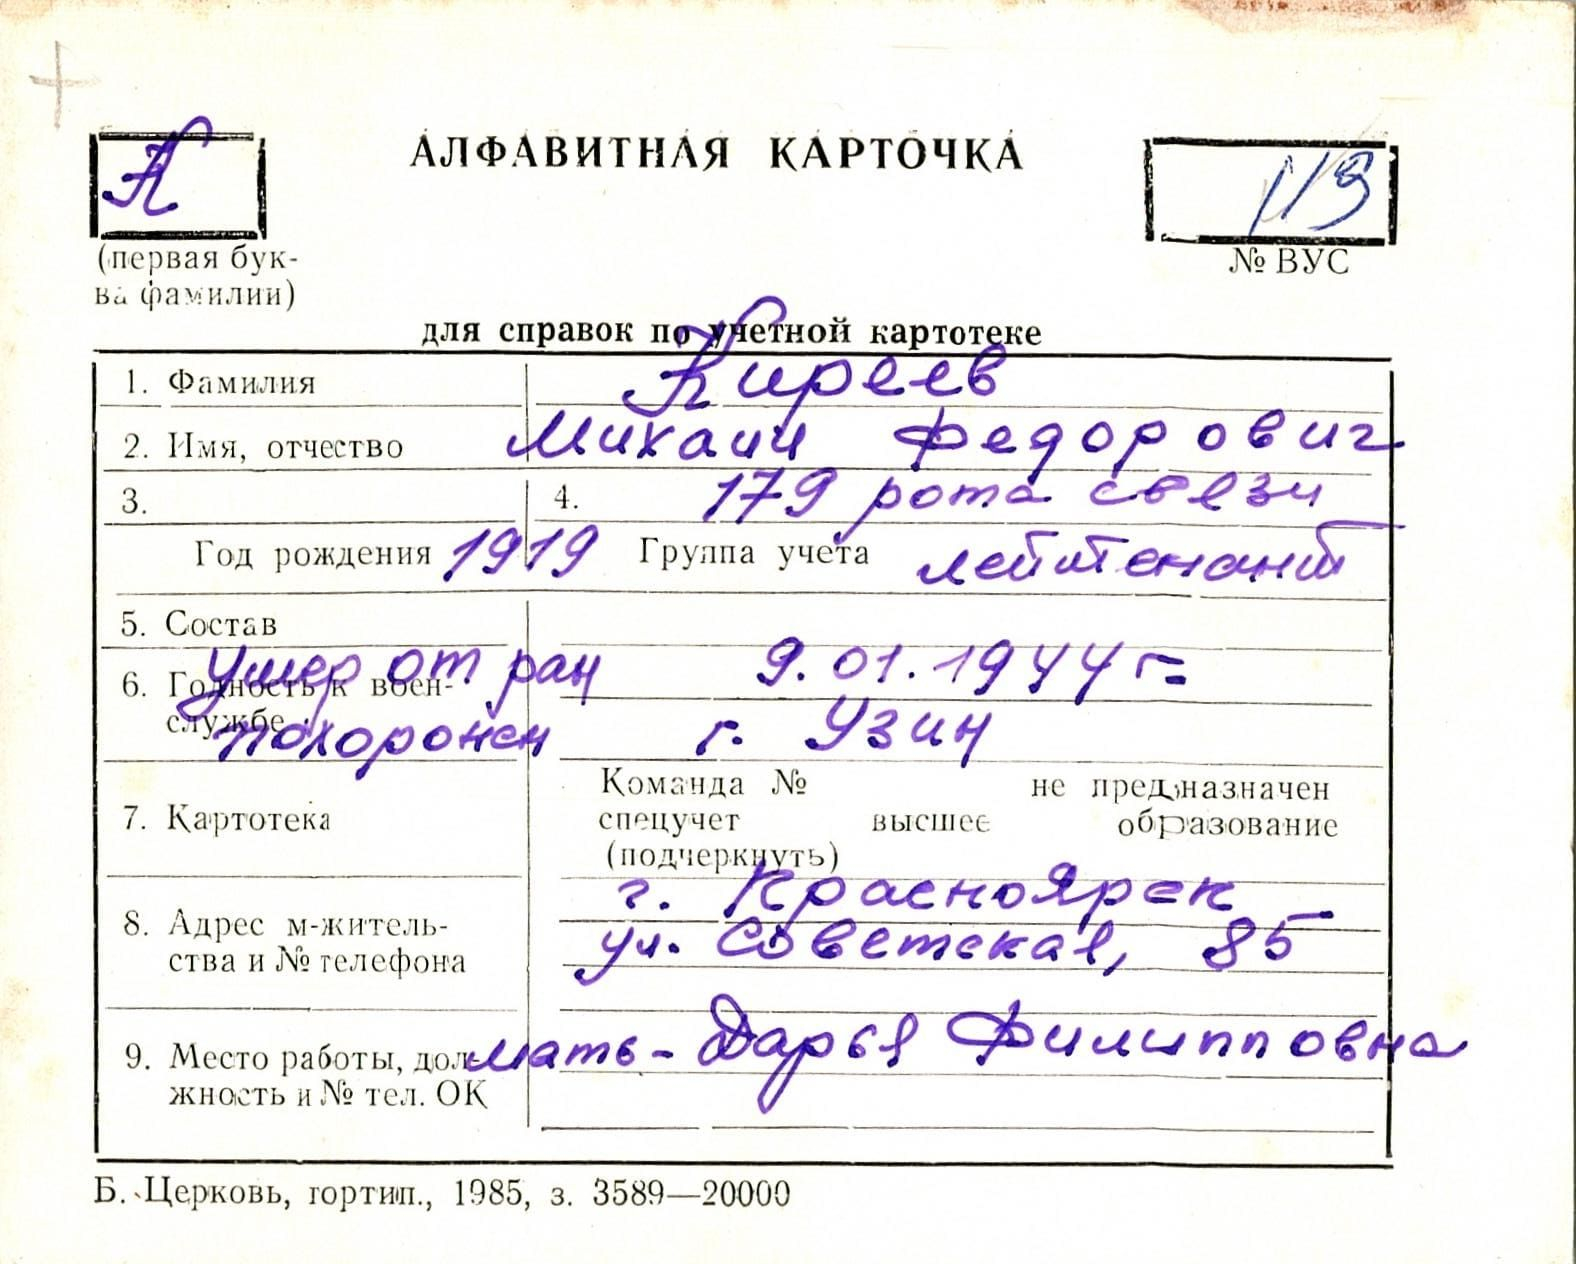 К
АЛФАВИТНАЯ КАРТОЧКА
113
(первая бук-
ва фамилии)
№ ВУС
для справок по учетной картотеке
1. Фамилия Киреев
2. Имя, отчество Михаил Федорович
3. 4. 179 рота связи
Год рождения 1919 Группа учета лейтенант
5. Состав
Умер от ран 9.01.1944 г.
6. Годность к воен-
службе
похоронен г. Узин
Команда № не предназначен
7. Картотека спецучет высшее образование
(подчеркнуть)
г. Красноярск
8. Адрес м-житель-
ства и № телефона
ул. Советская, 85
9. Место работы, дол- мать - Дарья Филипповна
жность и № тел. ОК
Б. Церковь, гортип., 1985, з. 3589—20000